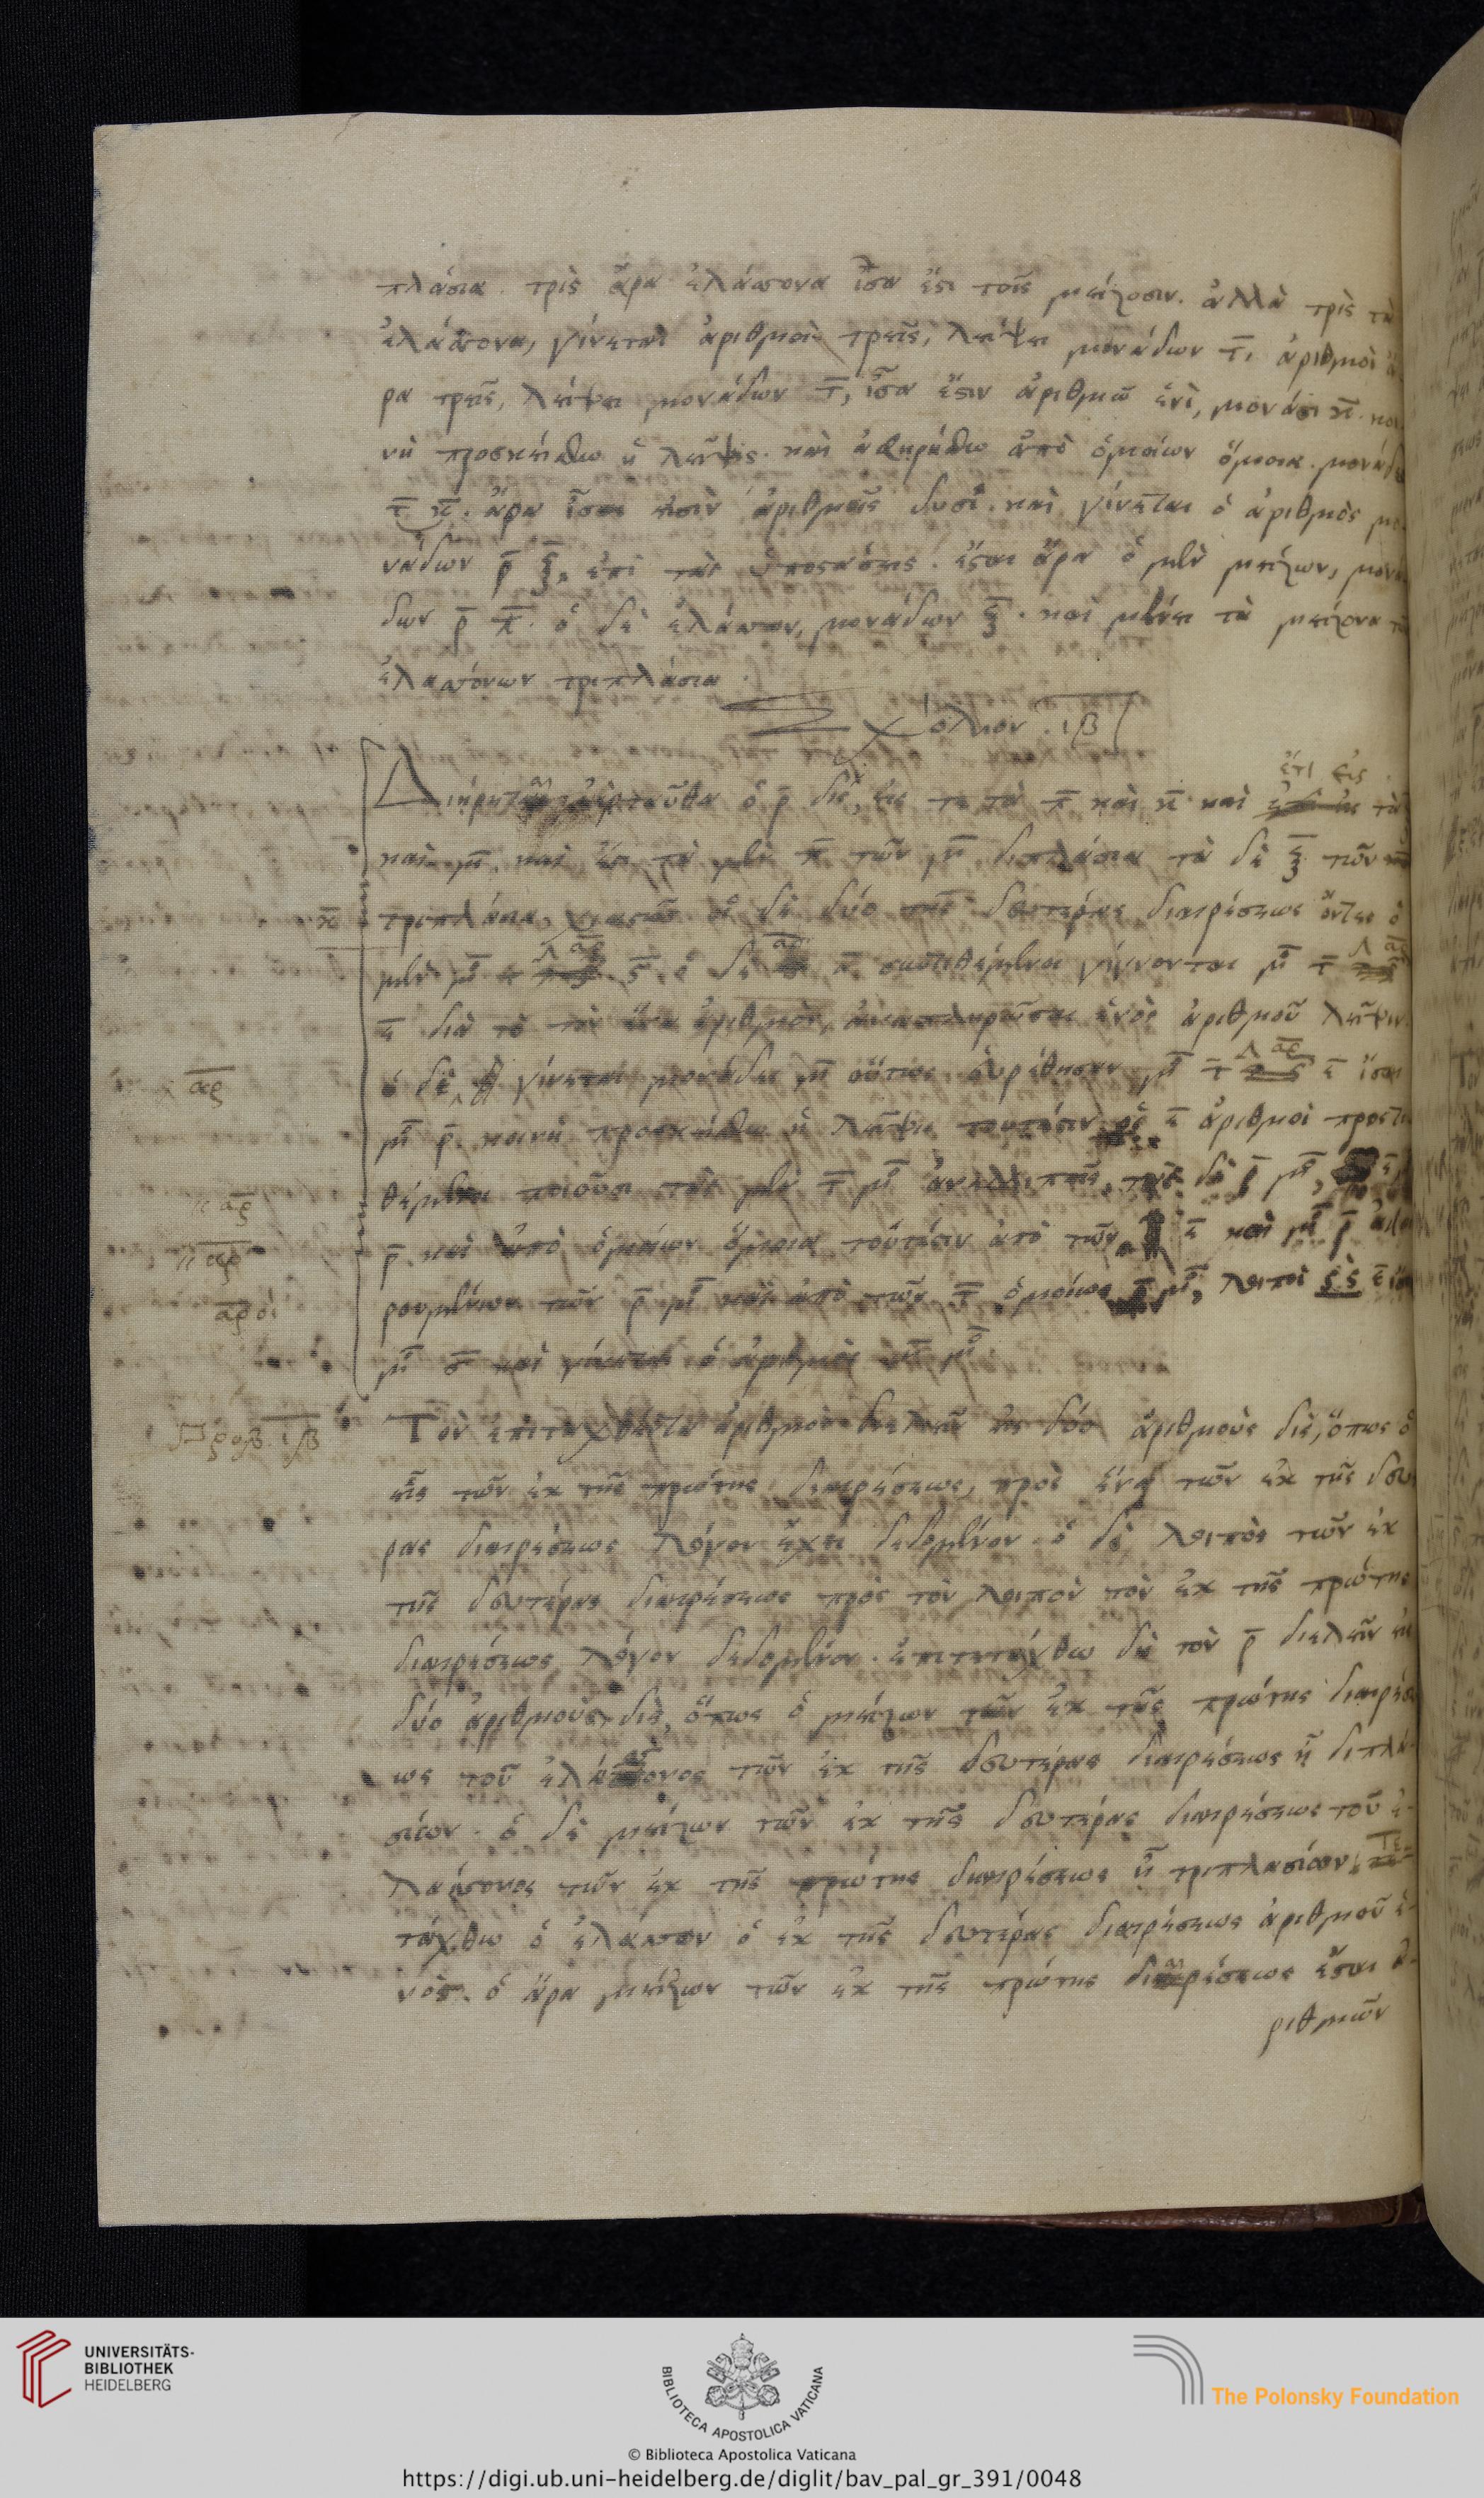 πλάσια. τρὶς ἄρα ἐλάττονα ἴσα ἐστὶ τοῖς μείζοσιν. ἀλλὰ τρὶς τὰ
ἐλάττονα, γίνεται ἀριθμοὶ τρεῖς, λείψει μονάδων τ̅. ἀριθμοὶ ἄ
ρα τρεῖς, λείψει μονάδων τ̅, ἴσα ἐστὶν ἀριθμῷ ἑνὶ, μονάσι κ̅. κοι
νὴ προσκείσθω ἡ λεῖψις. καὶ ἀφῃρήσθω ἀπὸ ὁμοίων ὅμοια. μονάδες
τ̅ κ̅. ἄρα ἴσαι εἰσὶν ἀριθμοῖς δυσί. καὶ γίνεται ὁ ἀριθμὸς μο
νάδων ρ̅ ξ̅. ἐπὶ τὰς ὑποστάσεις. ἔσται ἄρα ὁ μὲν μείζων, μονά
δων ρ̅ π̅. ὁ δὲ ἐλάττων, μονάδων ξ̅. καὶ μένει τὰ μείζονα τῶν
ἐλαττόνων τριπλάσια.
Σχόλιον. ιβ
ἔτι εἰς
Διῄρηται ἐνταῦθα ὁ ρ̅ δίς, εἰς τε τὰ π̅ καὶ κ̅ καὶ τὰ
καὶ μ̅. καὶ ἔστι τὰ μὲν π̅ τῶν μ̅ διπλάσια τὰ δὲ ξ̅ τῶν
κ̅ τριπλάσια, οἱ δὲ δύο τῆς δευτέρας διαιρέσεως ὄντες ὁ
μὲν μ̅ ὁ δὲ συντιθέμενοι γίνονται μ̅ τ̅
ε̅ διὰ τὸ τὸν ἕνα ἀριθμὸν, ἀναπληρῶσαι ἑνὸς ἀριθμοῦ λεῖψιν.
ὁ δὲ ας̅ γίνεται μονάδες μ̅ οὕτως. εὑρέθησαν μ̅ τ̅ ε̅ ἴσαι
μ̅ ρ̅. κοινὴ προσκείσθω ἡ λεῖψις τουτέστιν οἱ ε̅ ἀριθμοὶ προστι
θέμενοι ποιοῦσι τὰς μὲν τ̅ μ̅ ἀνελλιπεῖς, τὰς δὲ ρ̅ μ̅,
ρ̅. καὶ ἀπὸ ὁμοίων ὅμοια τουτέστιν ἀπὸ τῶν ε̅ καὶ μ̅ ρ̅ ἀφαι
ρουμένων τῶν ρ̅ μ̅ καὶ ἀπὸ τῶν τ̅ ὁμοίως ρ̅ μ̅, λοιποὶ ςς ε̅ ἴσοι
μ̅ σ̅ καὶ γίνεται ὁ ἀριθμὸς μ̅ μ̅
Προβ. ιβ
Τὸν ἐπιταχθέντα ἀριθμὸν διελεῖν εἰς δύο ἀριθμοὺς δίς, ὅπως ὁ
εἷς τῶν ἐκ τῆς πρώτης διαιρέσεως, πρὸς ἕνα τῶν ἐκ τῆς δευ
ρας διαιρέσεως λόγον ἔχει δεδομένον. ὁ δὲ λοιπὸς τῶν ἐκ
τῆς δευτέρας διαιρέσεως πρὸς τὸν λοιπὸν τὸν ἐκ τῆς πρώτης
διαιρέσεως λόγον δεδομένον. ἐπιτετάχθω δὴ τὸν ρ̅ διελεῖν εἰς
δύο ἀριθμοὺς δίς, ὅπως ὁ μείζων τῶν ἐκ τῆς πρώτης διαιρέσε
ως τοῦ ἐλάττονος τῶν ἐκ τῆς δευτέρας διαιρέσεως ᾖ διπλα
σίων. ὁ δὲ μείζων τῶν ἐκ τῆς δευτέρας διαιρέσεως τοῦ ἐ-
λάττονος τῶν ἐκ τῆς πρώτης διαιρέσεως ᾖ τριπλασίων, τε-
τάχθω ὁ ἐλάττων ὁ ἐκ τῆς δευτέρας διαιρέσεως ἀριθμοῦ ἑ-
νός. ὁ ἄρα μείζων τῶν ἐκ τῆς πρώτης διαιρέσεως ἔσται ἀ-
ριθμῶν
UNIVERSITÄTS-
BIBLIOTHEK
HEIDELBERG
BIBLIOTECA APOSTOLICA VATICANA
The Polonsky Foundation
© Biblioteca Apostolica Vaticana
https://digi.ub.uni-heidelberg.de/diglit/bav_pal_gr_391/0048